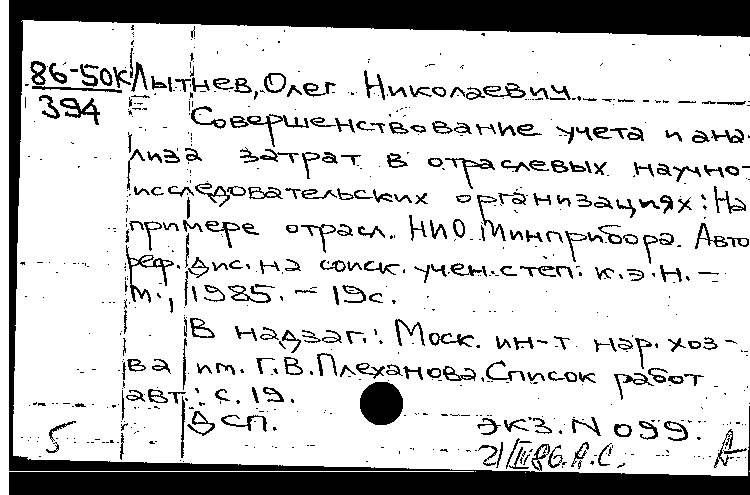 86-50К Лытнев, Олег Николаевич.
394
Совершенствование учета и ана-
лиза затрат в отраслевых научно-
исследовательских организациях: На
примере отрасл. НИО Минприбора. Авто
реф. дис. на соиск. учен. степ. к.э.н. –
М., 1985. – 19 с.
В надзаг.: Моск. ин-т нар. хоз-
ва им. Г.В. Плеханова. Список работ
авт.: с. 19.
ДСП. экз. N 099.
5 21/III86. А.С.